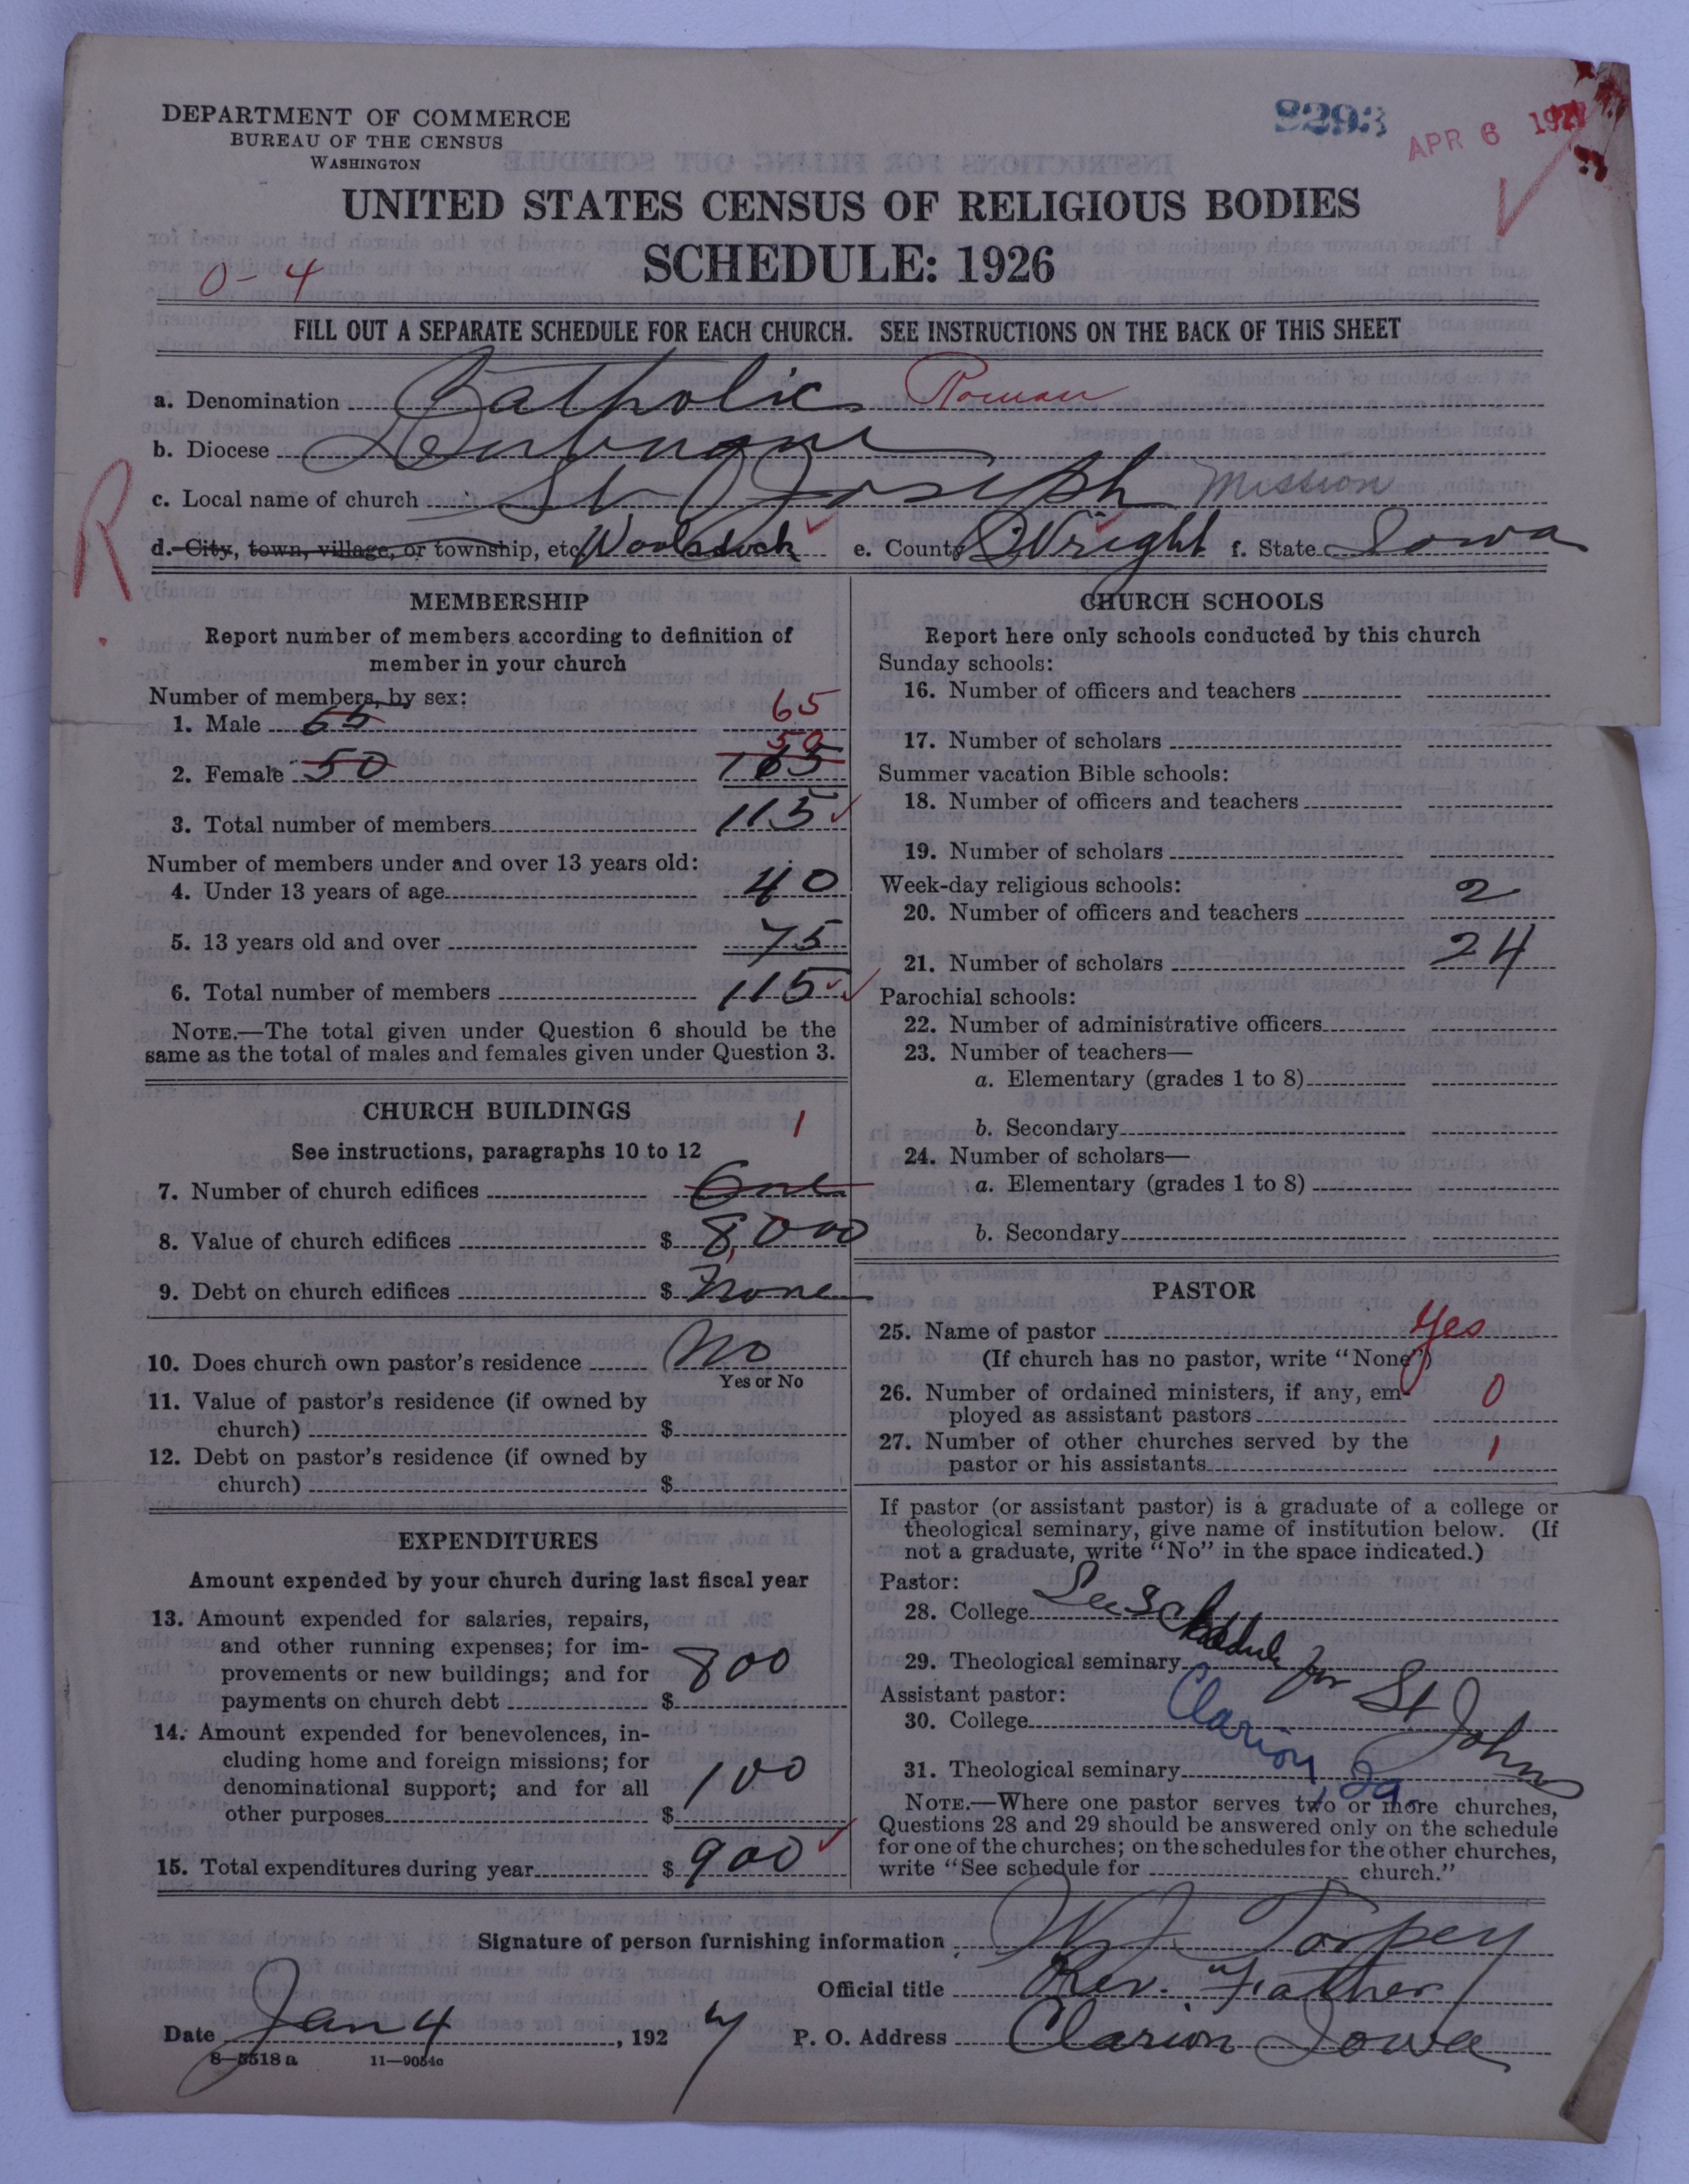 DEPARTMENT OF COMMERCE
BUREAU OF THE CENSUS
WASHINGTON
8293
APR 6 1927
UNITED STATES CENSUS OF RELIGIOUS BODIES
SCHEDULE: 1926
0-4
FILL OUT A SEPARATE SCHEDULE FOR EACH CHURCH. SEE INSTRUCTIONS ON THE BACK OF THIS SHEET
a. Denomination Catholic Roman
b. Diocese Dubuque
c. Local name of church St Joseph Mission
R
d. City, town, village, or township, etc Woolstock e. County Wright f. State Iowa
MEMBERSHIP
Report number of members according to definition of
member in your church
Number of members, by sex:
1. Male 65 65
2. Female 50 50
3. Total number of members 115
Number of members under and over 13 years old:
4. Under 13 years of age 40
5. 13 years old and over 75
6. Total number of members 115
NOTE.—The total given under Question 6 should be the
same as the total of males and females given under Question 3.
CHURCH BUILDINGS
See instructions, paragraphs 10 to 12
1
7. Number of church edifices One
8. Value of church edifices $ 8,000
9. Debt on church edifices $ None
10. Does church own pastor's residence No
Yes or No
11. Value of pastor's residence (if owned by
church) $
12. Debt on pastor's residence (if owned by
church) $
EXPENDITURES
Amount expended by your church during last fiscal year
13. Amount expended for salaries, repairs,
and other running expenses; for im-
provements or new buildings; and for
payments on church debt $ 800
14. Amount expended for benevolences, in-
cluding home and foreign missions; for
denominational support; and for all
other purposes $ 100
15. Total expenditures during year $ 900
CHURCH SCHOOLS
Report here only schools conducted by this church
Sunday schools:
16. Number of officers and teachers
17. Number of scholars
Summer vacation Bible schools:
18. Number of officers and teachers
19. Number of scholars
Week-day religious schools:
20. Number of officers and teachers 2
21. Number of scholars 24
Parochial schools:
22. Number of administrative officers
23. Number of teachers—
a. Elementary (grades 1 to 8)
b. Secondary
24. Number of scholars—
a. Elementary (grades 1 to 8)
b. Secondary
PASTOR
25. Name of pastor Yes
(If church has no pastor, write "None")
26. Number of ordained ministers, if any, em-
ployed as assistant pastors 0
27. Number of other churches served by the
pastor or his assistants 1
If pastor (or assistant pastor) is a graduate of a college or
theological seminary, give name of institution below. (If
not a graduate, write "No" in the space indicated.)
Pastor:
28. College See Schedule for St Johns
29. Theological seminary
Assistant pastor:
30. College Clarion, Ia.
31. Theological seminary
NOTE.—Where one pastor serves two or more churches,
Questions 28 and 29 should be answered only on the schedule
for one of the churches; on the schedules for the other churches,
write "See schedule for church."
Signature of person furnishing information W J. Torpey
Official title Rev. "Father"
Date Jan 4, 1927 P. O. Address Clarion Iowa
8—5518 a 11—9054c